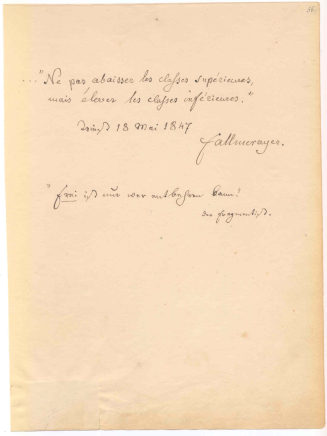 56.
..."Ne pas abaisser les classes supérieures,
mais élever les classes inférieures."
18 Mai 1847
Fallmerayer.
"Frei ist nur wer entbehren kann!
der Fragmentist.